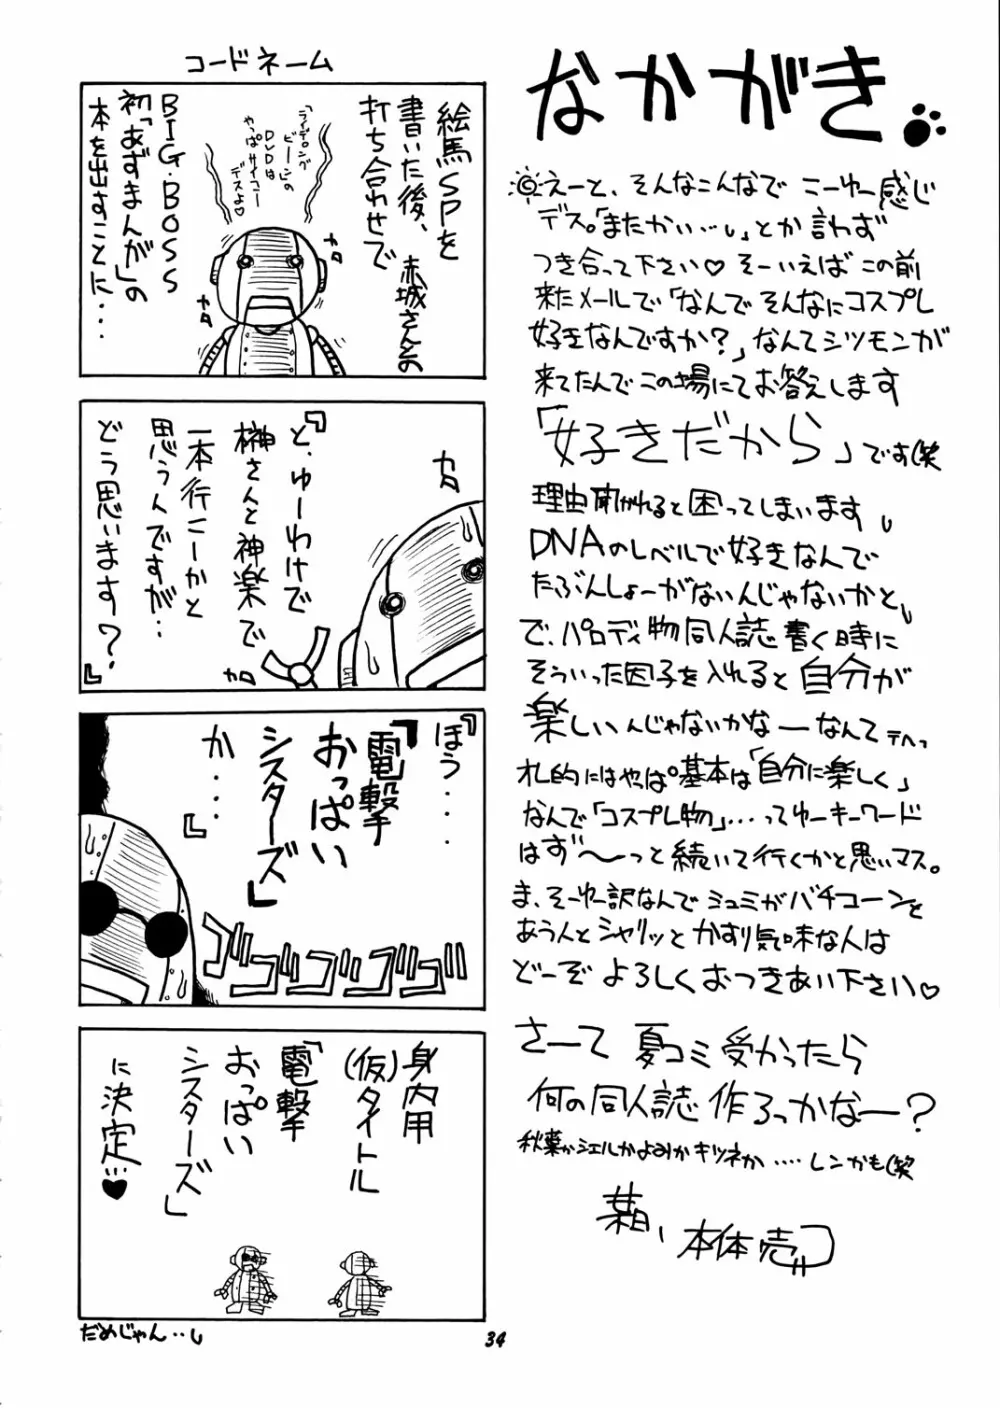 コードネーム
絵馬SPを
書いた後、赤城さんとの
打ち合わせで
「ライデロング
ビーン」の
DVDは
やっぱサイコー
デスよ♡
BIG・BOSS
初「あずまんが」の
本を出すことに・・・
カロ
カロ
『と、ゆーわけで
榊さんと神楽で
一本行こーかと
思うんですが…
どう思います?』
カロ
カロ
『ほう・・・
「電撃
おっぱい
シスターズ」
か・・・』
ゴゴゴゴゴゴ
身内用
(仮)タイトル
「電撃
おっぱい
シスターズ」
に決定…♥
だめじゃん…
なかがき
えーと、そんなこんなで こーゆー感じ
デス。「またかい…」とか言わず
つき合って下さい♡ そーいえば この前
来たメールで「なんで そんなにコスプレ
好きなんですか?」なんてシツモンが
来てたんで この場にてお答えします
「好きだから」です(笑
理由聞かれると困ってしまいます
DNAのレベルで好きなんで
たぶんしょーがないんじゃないかと
で、パロディ物同人誌書く時に
そういった因子を入れると自分が
楽しいんじゃないかなーなんて テヘっ
札的にはやっぱ基本は「自分に楽しく」
なんで「コスプレ物」…ってゆーキーワード
はず〜っと続いて行くかと思いマス。
ま、そーゆー訳なんで ミュミがバチコーンと
あう人とシャリッとかすり気味な人は
どーぞ よろしくおつきあい下さい♡
さーて 夏コミ受かったら
何の同人誌 作ろっかなー?
秋葉かシエルかよみかキツネか....レンかも(笑
本体売
34